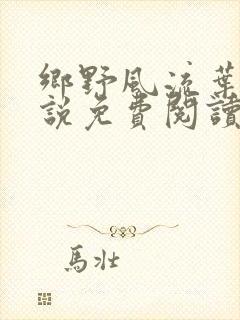 鄉野風流葉
說免費閱讀
馬壯